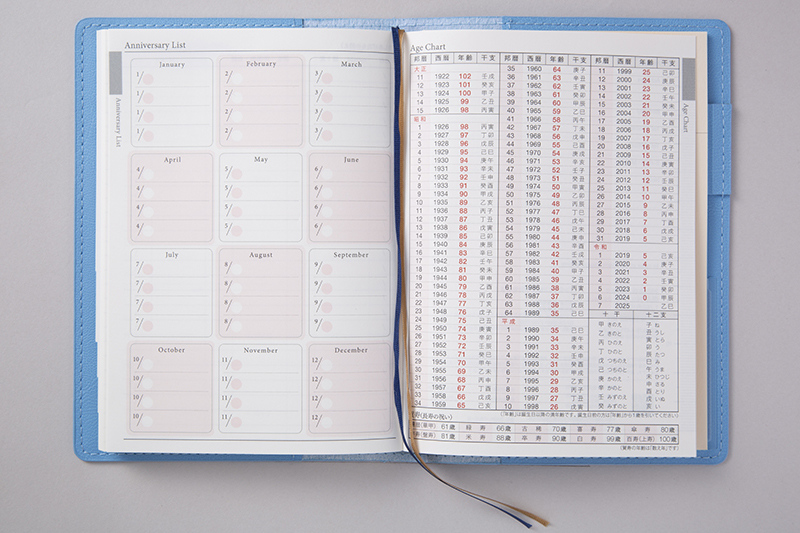 Anniversary List
January
1/
1/
1/
1/
February
2/
2/
2/
2/
March
3/
3/
3/
3/
April
4/
4/
4/
4/
May
5/
5/
5/
5/
June
6/
6/
6/
6/
July
7/
7/
7/
7/
August
8/
8/
8/
8/
September
9/
9/
9/
9/
October
10/
10/
10/
10/
November
11/
11/
11/
11/
December
12/
12/
12/
12/
Anniversary List
Age Chart
邦暦 西暦 年齢 干支
大正
11 1922 102 壬戌
12 1923 101 癸亥
13 1924 100 甲子
14 1925 99 乙丑
15 1926 98 丙寅
昭和
1 1926 98 丙寅
2 1927 97 丁卯
3 1928 96 戊辰
4 1929 95 己巳
5 1930 94 庚午
6 1931 93 辛未
7 1932 92 壬申
8 1933 91 癸酉
9 1934 90 甲戌
10 1935 89 乙亥
11 1936 88 丙子
12 1937 87 丁丑
13 1938 86 戊寅
14 1939 85 己卯
15 1940 84 庚辰
16 1941 83 辛巳
17 1942 82 壬午
18 1943 81 癸未
19 1944 80 甲申
20 1945 79 乙酉
21 1946 78 丙戌
22 1947 77 丁亥
23 1948 76 戊子
24 1949 75 己丑
25 1950 74 庚寅
26 1951 73 辛卯
27 1952 72 壬辰
28 1953 71 癸巳
29 1954 70 甲午
30 1955 69 乙未
31 1956 68 丙申
32 1957 67 丁酉
33 1958 66 戊戌
34 1959 65 己亥
邦暦 西暦 年齢 干支
35 1960 64 庚子
36 1961 63 辛丑
37 1962 62 壬寅
38 1963 61 癸卯
39 1964 60 甲辰
40 1965 59 乙巳
41 1966 58 丙午
42 1967 57 丁未
43 1968 56 戊申
44 1969 55 己酉
45 1970 54 庚戌
46 1971 53 辛亥
47 1972 52 壬子
48 1973 51 癸丑
49 1974 50 甲寅
50 1975 49 乙卯
51 1976 48 丙辰
52 1977 47 丁巳
53 1978 46 戊午
54 1979 45 己未
55 1980 44 庚申
56 1981 43 辛酉
57 1982 42 壬戌
58 1983 41 癸亥
59 1984 40 甲子
60 1985 39 乙丑
61 1986 38 丙寅
62 1987 37 丁卯
63 1988 36 戊辰
64 1989 35 己巳
平成
1 1989 35 己巳
2 1990 34 庚午
3 1991 33 辛未
4 1992 32 壬申
5 1993 31 癸酉
6 1994 30 甲戌
7 1995 29 乙亥
8 1996 28 丙子
9 1997 27 丁丑
10 1998 26 戊寅
邦暦 西暦 年齢 干支
11 1999 25 己卯
12 2000 24 庚辰
13 2001 23 辛巳
14 2002 22 壬午
15 2003 21 癸未
16 2004 20 甲申
17 2005 19 乙酉
18 2006 18 丙戌
19 2007 17 丁亥
20 2008 16 戊子
21 2009 15 己丑
22 2010 14 庚寅
23 2011 13 辛卯
24 2012 12 壬辰
25 2013 11 癸巳
26 2014 10 甲午
27 2015 9 乙未
28 2016 8 丙申
29 2017 7 丁酉
30 2018 6 戊戌
31 2019 5 己亥
令和
1 2019 5 己亥
2 2020 4 庚子
3 2021 3 辛丑
4 2022 2 壬寅
5 2023 1 癸卯
6 2024 0 甲辰
7 2025 乙巳
十干 十二支
甲 きのえ
乙 きのと
丙 ひのえ
丁 ひのと
戊 つちのえ
己 つちのと
庚 かのえ
辛 かのと
壬 みずのえ
癸 みずのと
子 ね
丑 うし
寅 とら
卯 う
辰 たつ
巳 み
午 うま
未 ひつじ
申 さる
酉 とり
戌 いぬ
亥 い
(「年齢」は誕生日以降の満年齢です。誕生日前の方は「年齢」から1歳を引いてください)
寿(長寿の祝い)
(華甲) 61歳 緑寿 66歳 古稀 70歳 喜寿 77歳 傘寿 80歳
81歳 米寿 88歳 卒寿 90歳 白寿 99歳 百寿(上寿) 100歳
(賀寿の年齢は「数え年」です)
Age Chart